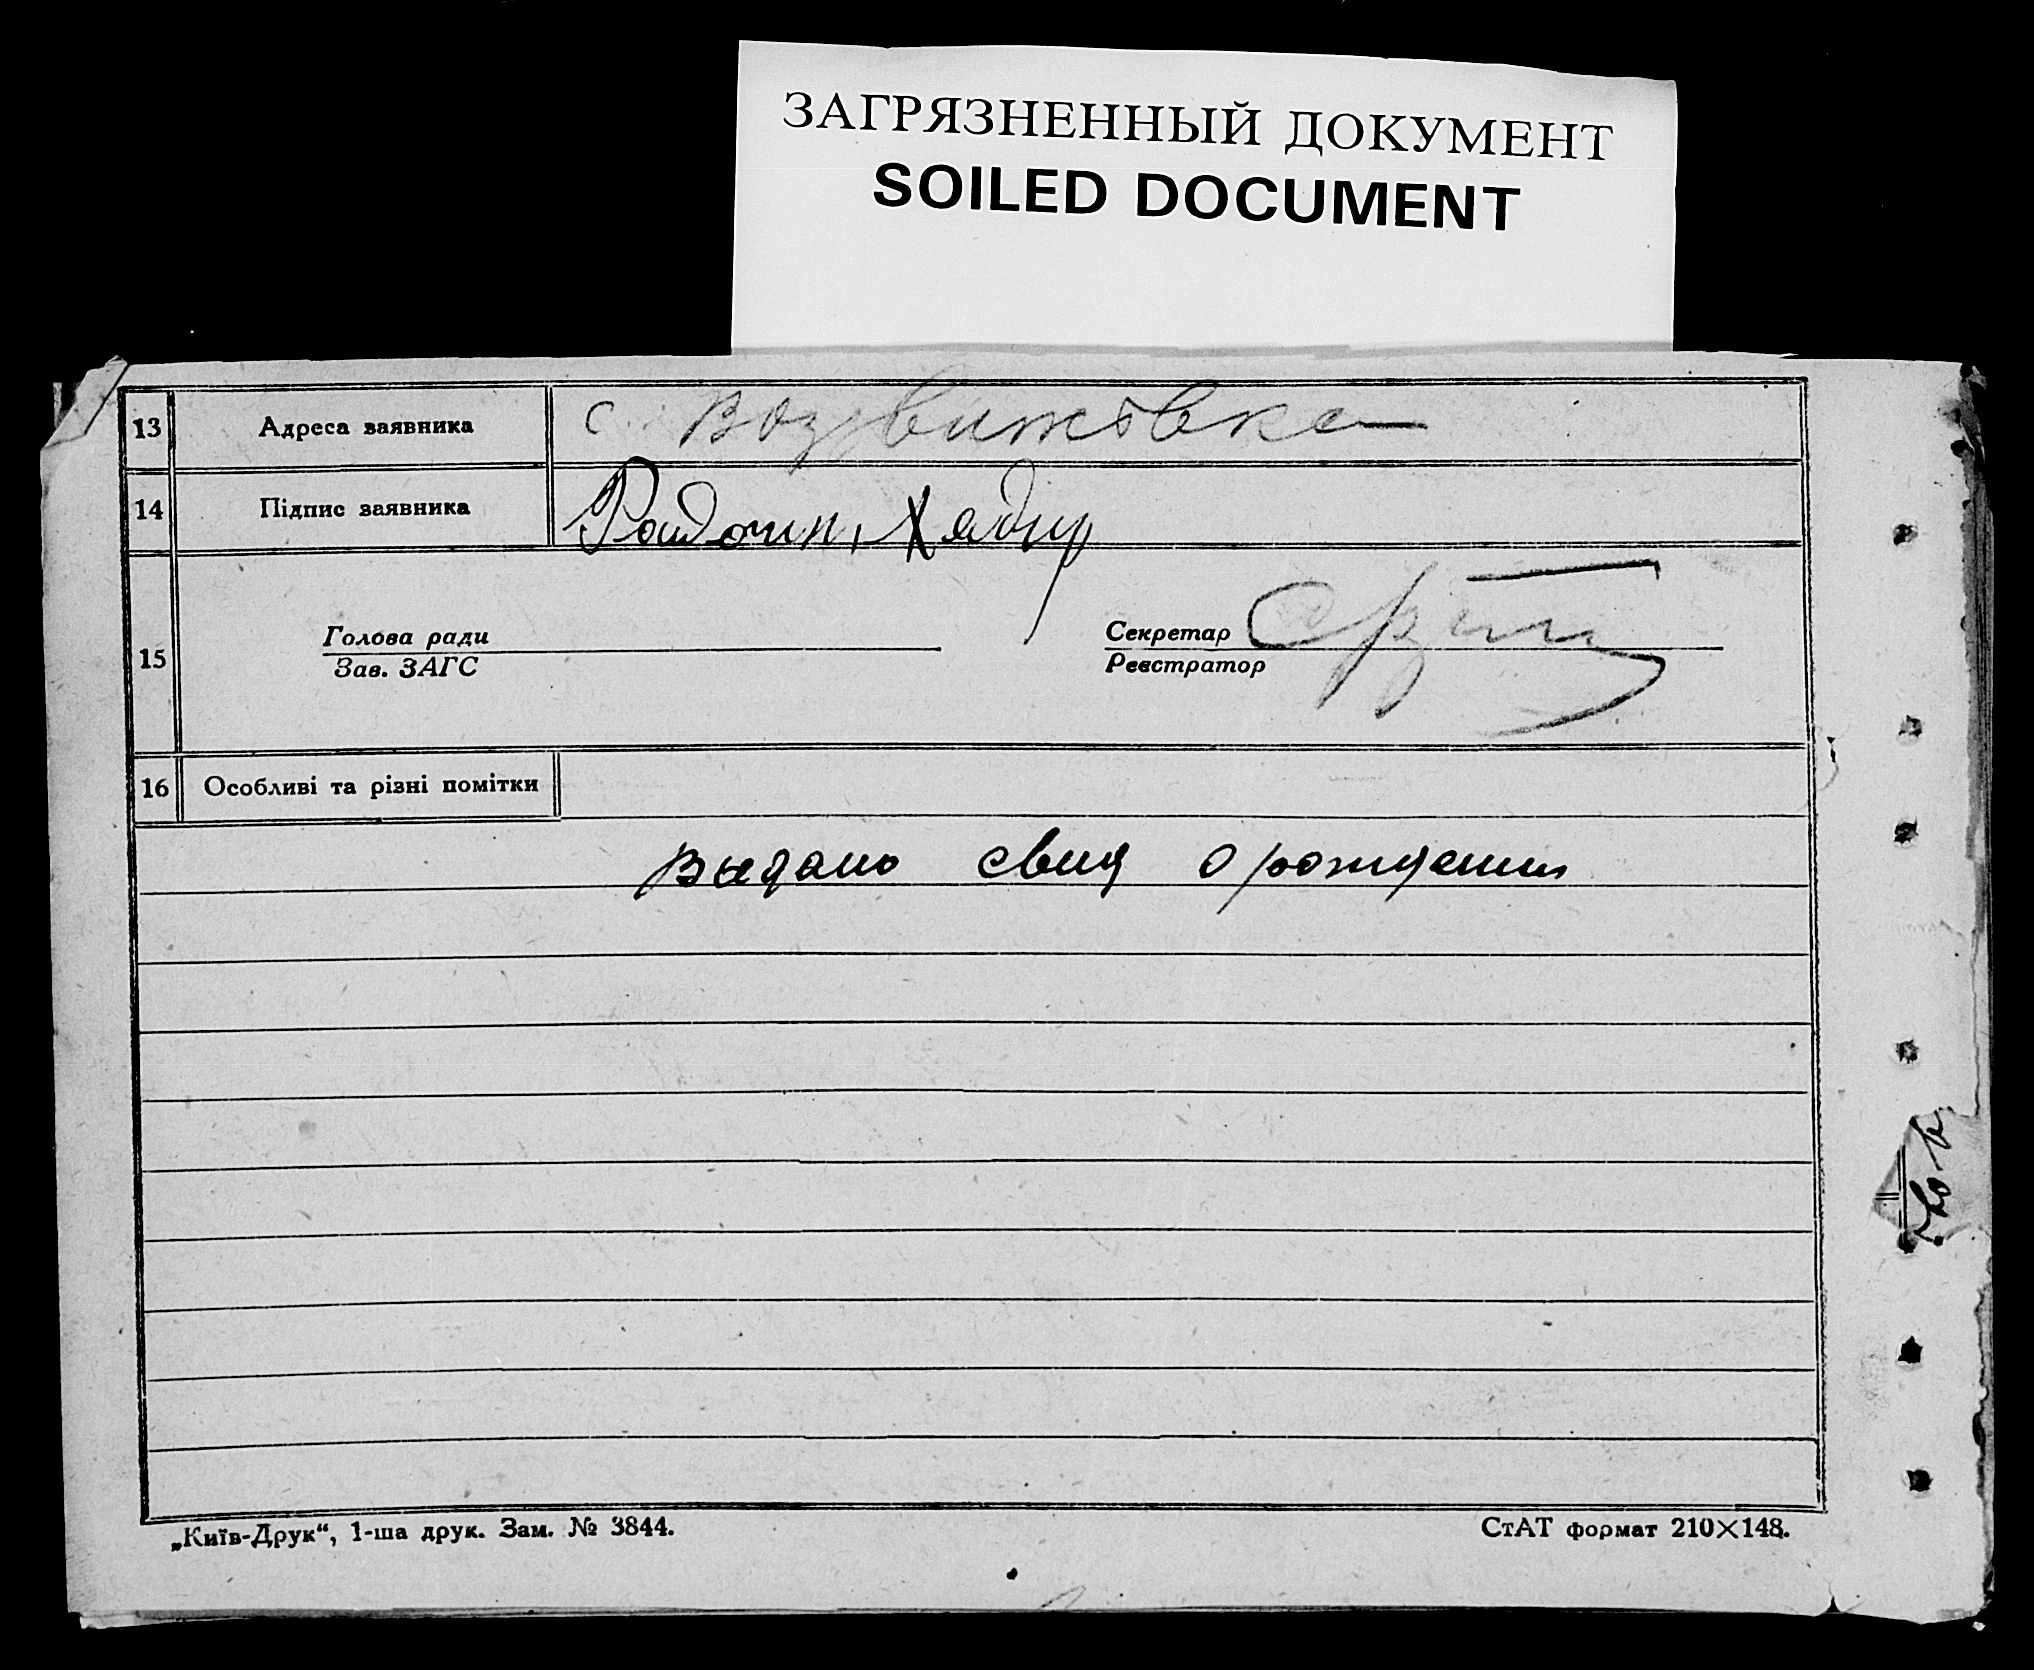 ЗАГРЯЗНЕННЫЙ ДОКУМЕНТ
SOILED DOCUMENT
13 Адреса заявника с. Воздвижовка
14 Підпис заявника
15
Голова ради
Зав. ЗАГС
Секретар
Реєстратор
16 Особливі та різні помітки
Выдано свид о рождении
„Київ-Друк“, 1-ша друк. Зам. № 3844.
СтАТ формат 210×148.